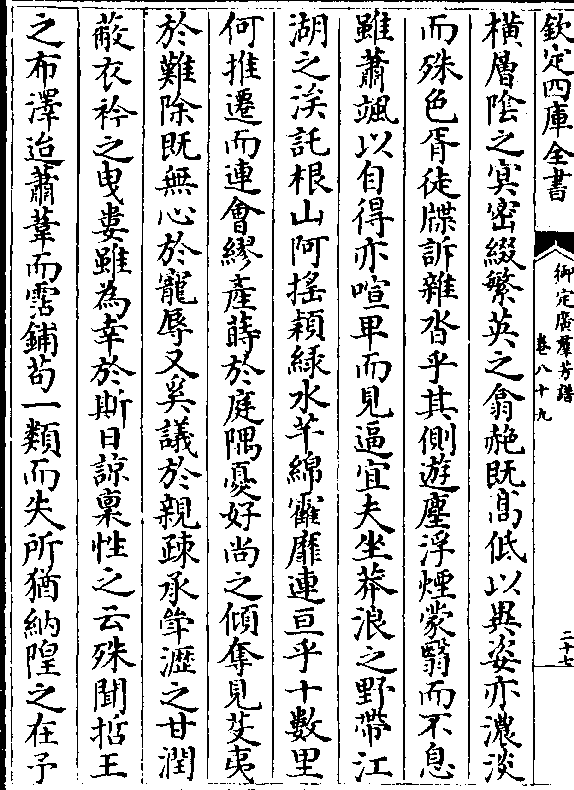 欽定四庫全書
御定廣羣芳譜
卷八十九
二十七
橫層陰之冥密綴繁英之翕赩既髙低以異姿亦濃淡
而殊色胥徒牒訴雜沓乎其側遊塵浮煙蒙翳而不息
雖蕭颯以自得亦喧卑而見逼宜夫坐莽浪之野帶江
湖之涘託根山阿揺穎緑水芊綿靃靡連亘乎十數里
何推遷而連㑹繆產蒔於庭隅憂好尚之傾奪見芟夷
於難除既無心於寵辱又奚議於親疎承㳙瀝之甘潤
蔽衣衿之曳婁雖為幸於斯日諒稟性之云殊聞哲王
之布澤迨蕭葦而霑鋪茍一類而失所猶納隍之在予